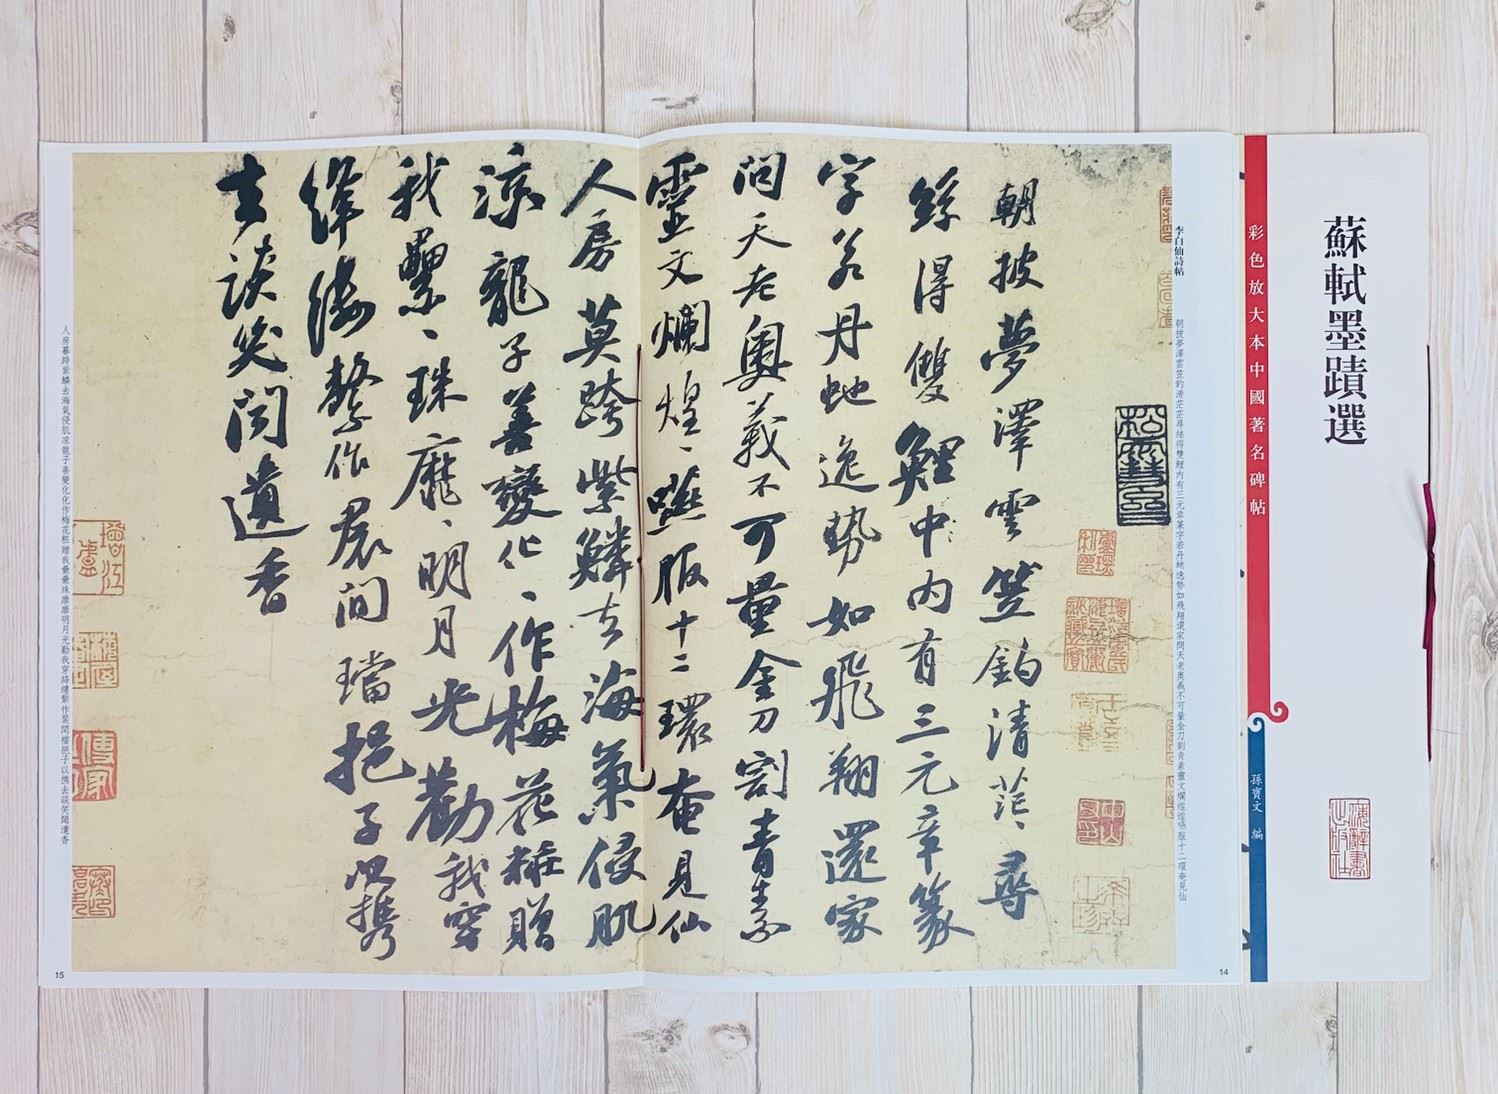 蘇軾墨蹟選
彩色放大本中國著名碑帖
孫寶文 編
李白仙詩帖
朝披夢澤雲笠釣清茫茫尋絲得雙鯉內有三元章篆字若丹虵逸勢如飛翔還家問天老奧義不可量金刀割青素靈文爛煌煌嚥服十二環奄見仙
朝披夢澤雲笠釣清茫〻尋
絲得雙鯉中內有三元章篆
字若丹虵逸勢如飛翔還家
問天老奧義不可量金刀割青素
靈文爛煌〻嚥服十二環奄見仙
人房莫跨紫鱗去海氣侵肌
涼龍子善變化〻作梅花粧贈
我纍〻珠靡〻明月光勸我穿
絳縷繫作裙間璫挹子以攜
去談笑聞遺香
人房暮跨紫鱗去海氣侵肌涼龍子善變化化作梅花粧贈我纍纍珠靡靡明月光勸我穿絳縷繫作裙間璫挹子以攜去談笑聞遺香
14
15